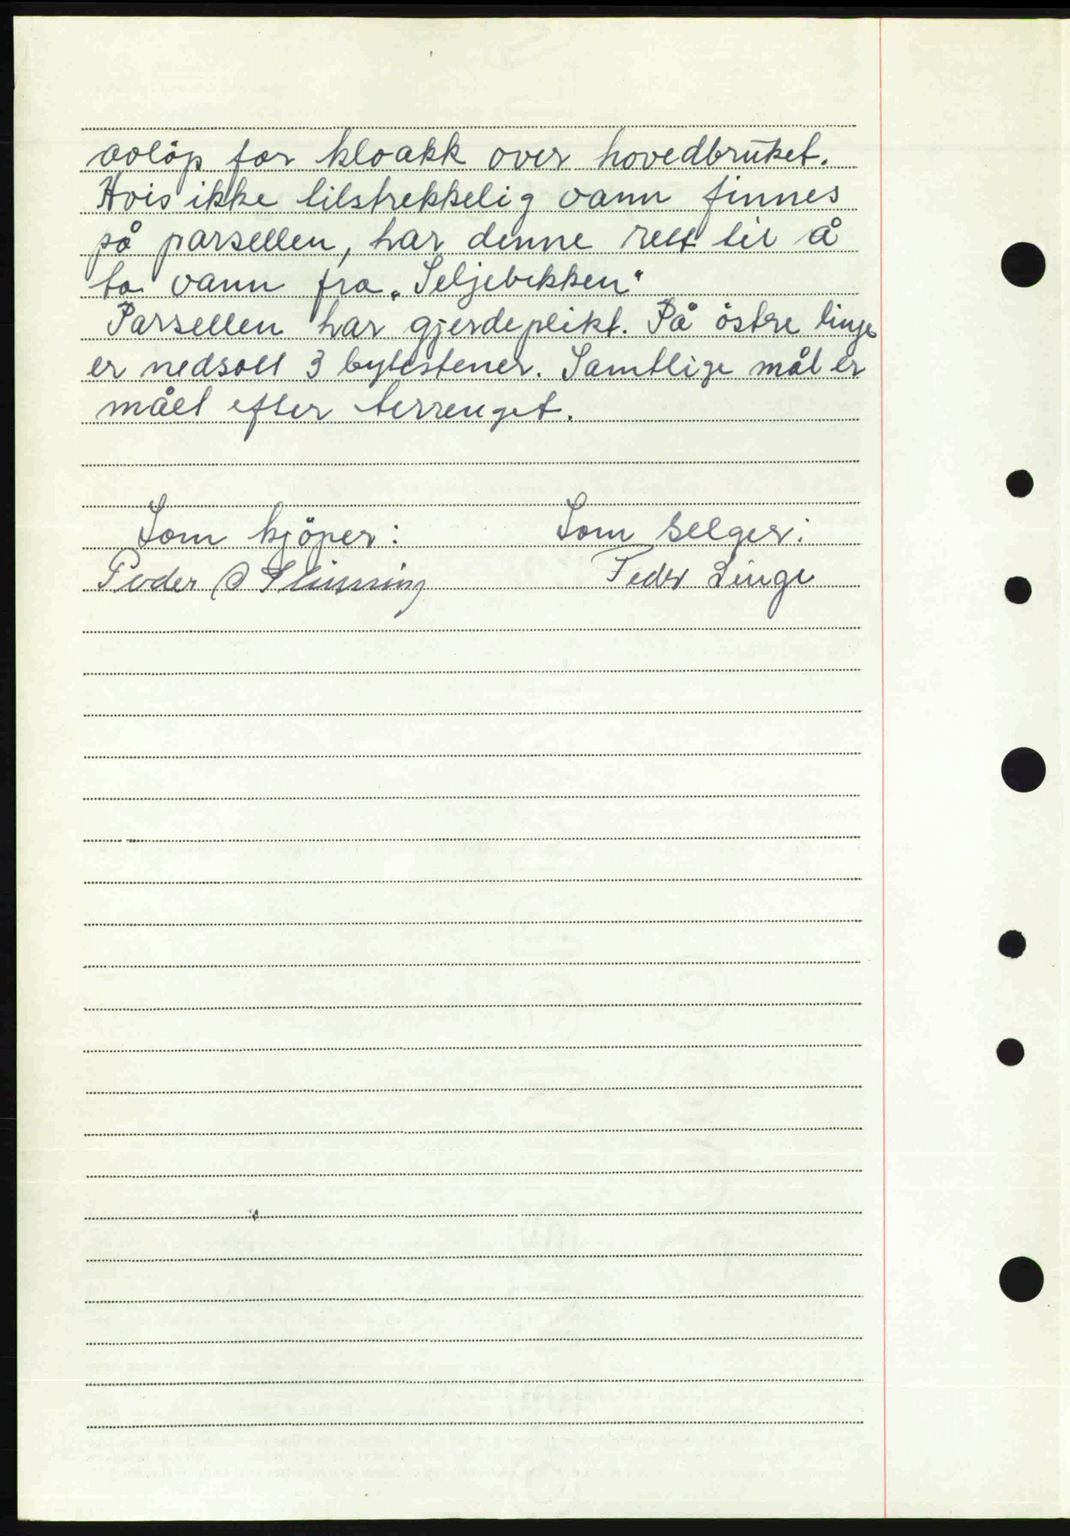 avlöp for kloakk over hovedbruket.
Hvis ikke tilstrekkelig vann finnes
på parsellen, har denne rett til å
ta vann fra „Seljebekken“
Parsellen har gjerdeplikt. På östre linje
er nedsatt 3 bytestener. Samtlige mål er
målt efter terrenget.
Som kjöper: Som selger:
Peder Linge